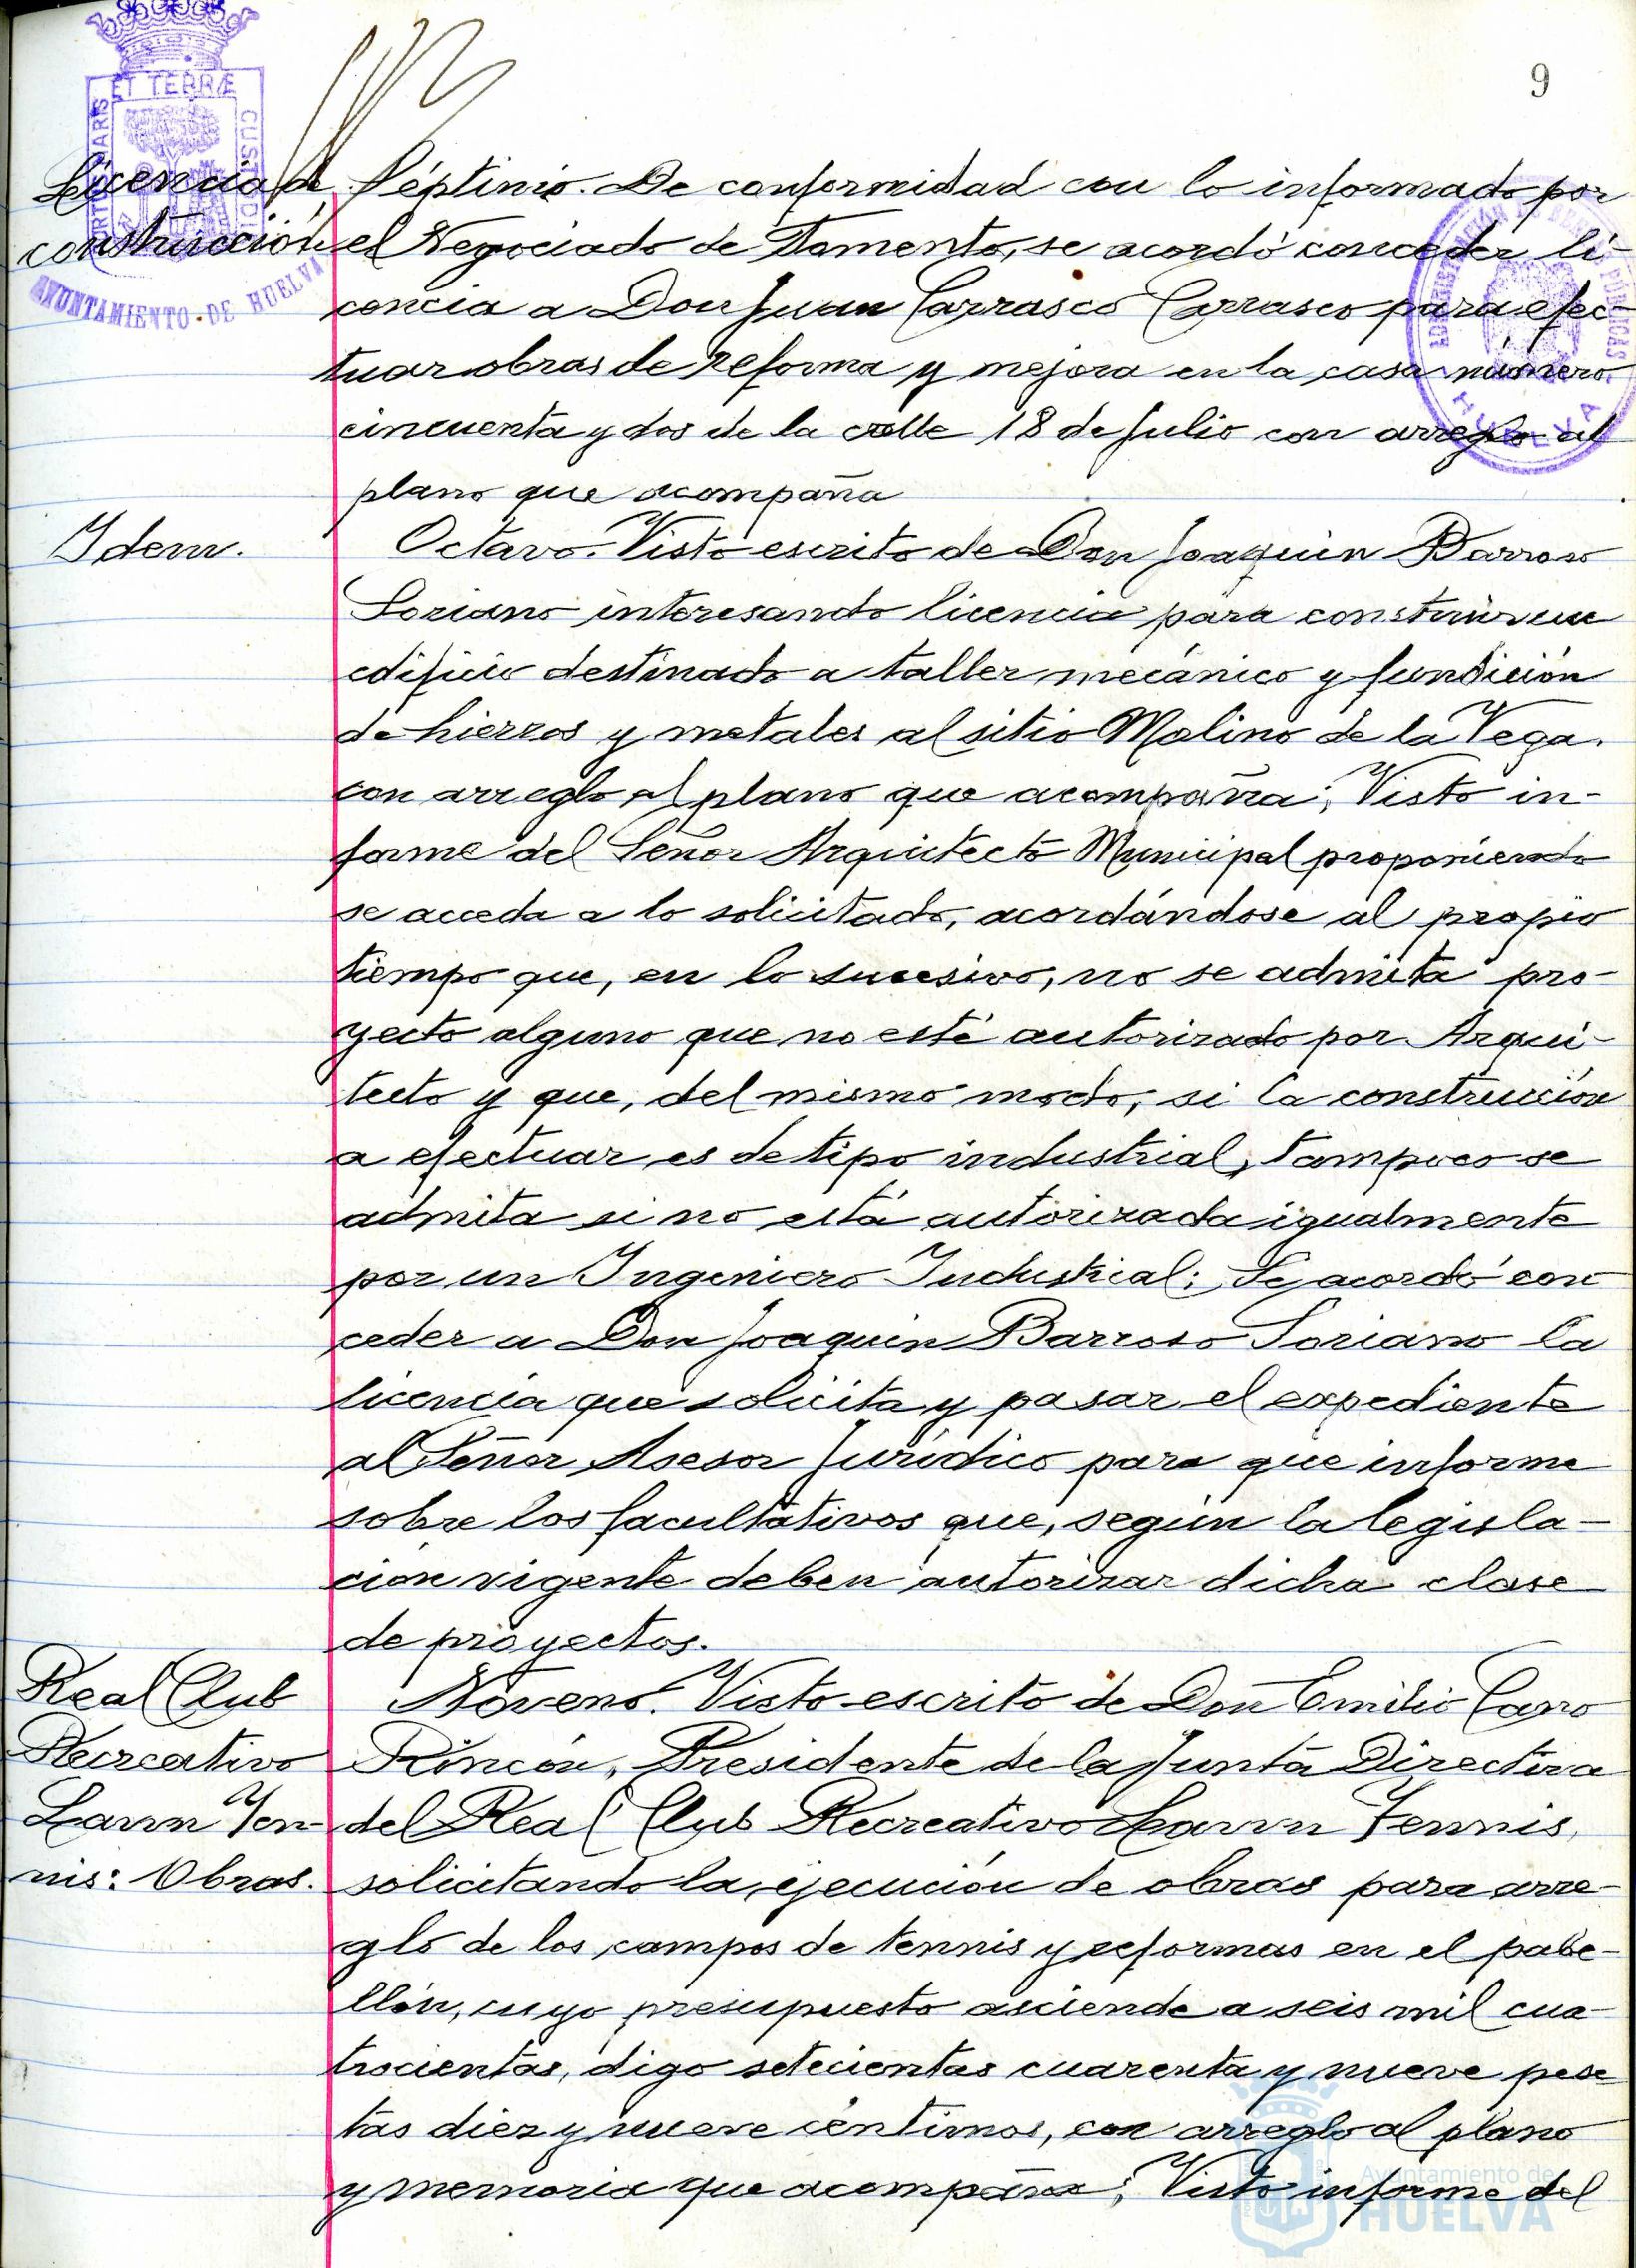 9
PORTUS MARIS ET TERRÆ CUSTODIA
AYUNTAMIENTO DE HUELVA
Licencia de
construcción
Séptimo. De conformidad con lo informado por
el Negociado de Fomento, se acordó conceder li-
cencia a Don Juan Carrasco Carrasco para efec-
tuar obras de reforma y mejora en la casa número
cincuenta y dos de la calle 18 de Julio con arreglo al
plano que acompaña
HUELVA
Idem.
Octavo. Visto escrito de Don Joaquin Barroso
Soriano interesando licencia para construir un
edificio destinado a taller mecánico y fundición
de hierros y metales al sitio Molino de la Vega.
con arreglo al plano que acompaña; Visto in-
forme del Señor Arquitecto Municipal proponiendo
se acceda a lo solicitado, acordándose al propio
tiempo que, en lo sucesivo, no se admita pro-
yecto alguno que no esté autorizado por Arqui-
tecto y que, del mismo modo, si la construcción
a efectuar es de tipo industrial, tampoco se
admita si no está autorizada igualmente
por un Ingeniero Industrial; Se acordó con
ceder a Don Joaquin Barroso Soriano la
licencia que solicita y pasar el expediente
al Señor Asesor Jurídico para que informe
sobre los facultativos que, según la legisla-
ción vigente deben autorizar dicha clase
de proyectos.
Real Club
Recreativo
Lawn Ten-
nis: Obras.
Noveno. Visto escrito de Don Emilio Cano
Rincón, Presidente de la Junta Directiva
del Real Club Recreativo Lawn Tennis,
solicitando la ejecución de obras para arre-
glo de los campos de tennis y reformas en el pabe-
llón, cuyo presupuesto asciende a seis mil cua-
trocientas, digo setecientas cuarenta y nueve pese-
tas diez y nueve céntimos, con arreglo al plano
y memoria que acompaña; Visto informe del
Ayuntamiento de
HUELVA